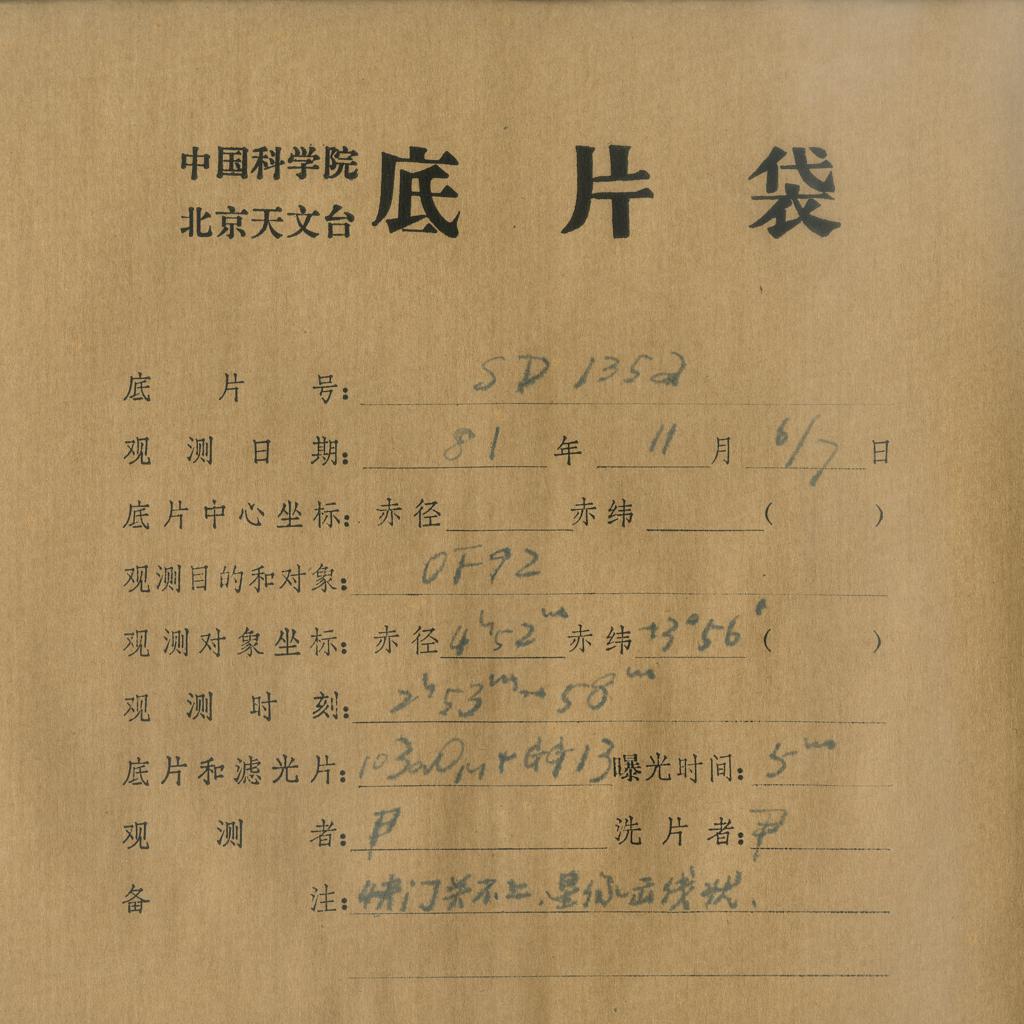 中国科学院
北京天文台
底片袋
底片号: SD 1352
观测日期: 81 年 11 月 6/7 日
底片中心坐标: 赤径 赤纬 ( )
观测目的和对象: OF92
观测对象坐标: 赤径 4h52m 赤纬 +3°56′ ( )
观测时刻: 2h53m~58m
底片和滤光片: 103aO + GG13 曝光时间: 5m
观测者: 洗片者:
备注: 快门关不上.星像线状.